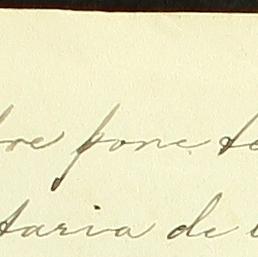 bre pone te
taria de